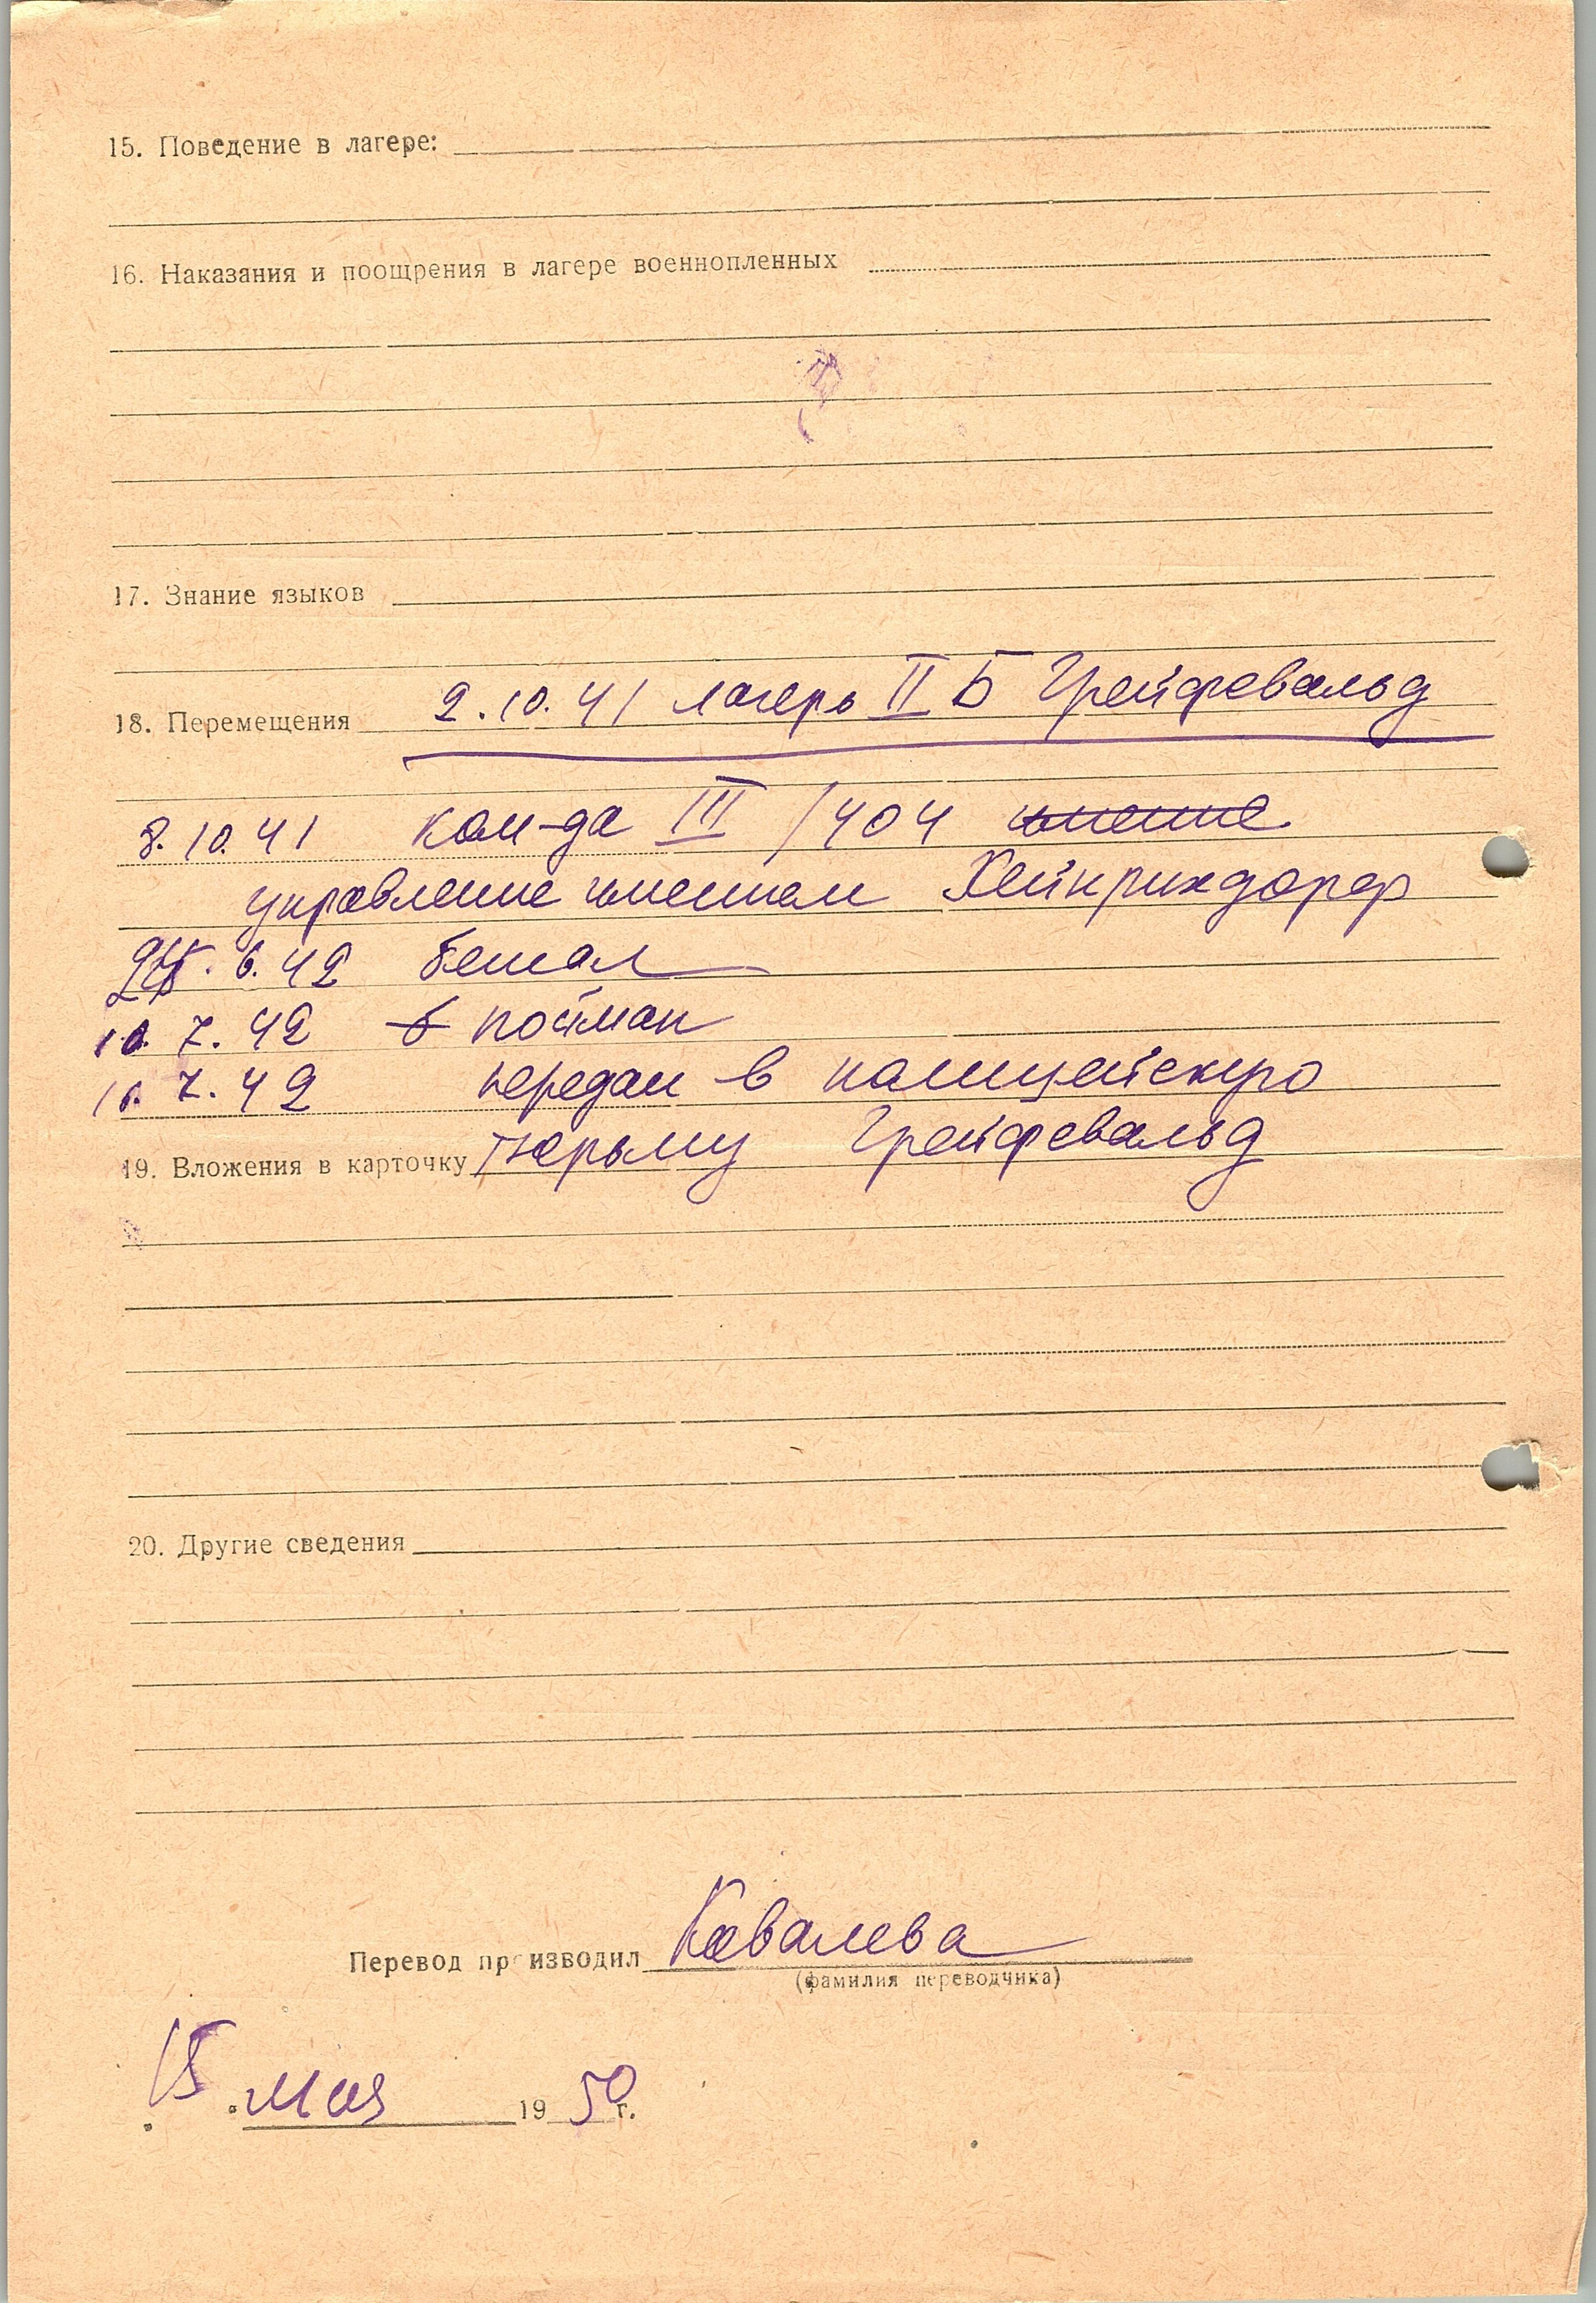 15. Поведение в лагере:
16. Наказания и поощрения в лагере военнопленных
17. Знание языков
18. Перемещения 2.10.41 лагерь II Б Грейфевальд
8.10.41 ком-да III /404 имение
управление имением Хейнрихдорф
6.42 бежал
10.7.42 в пойман
10.7.42 передан в полицейскую
тюрьму Грейфевальд
19. Вложения в карточку
20. Другие сведения
Перевод производил Ковалева
(фамилия переводчика)
15 мая 1950 г.